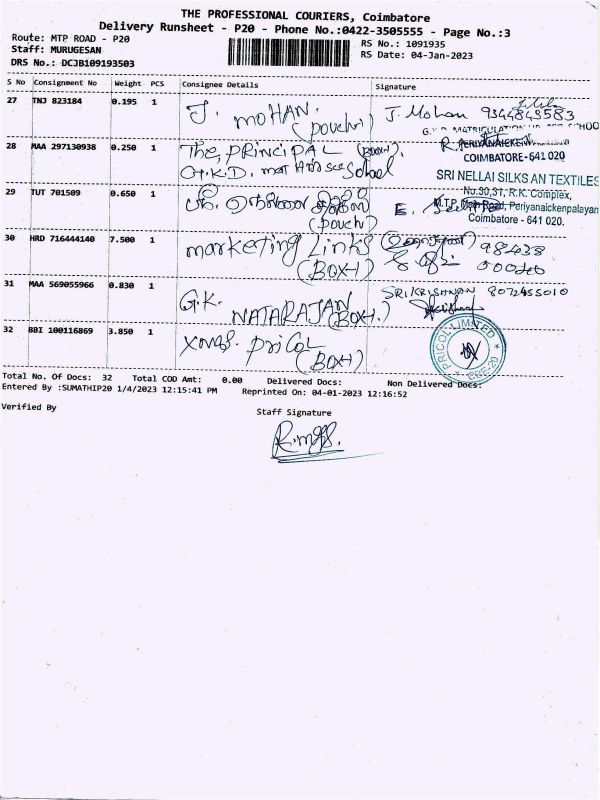 THE PROFESSIONAL COURIERS, Coimbatore
Delivery Runsheet - P20 - Phone No.:0422-3505555 - Page No.:3
Route: MTP ROAD - P20
RS No.: 1091935
Staff: MURUGESAN
RS Date: 04-Jan-2023
DRS No.: DCJB109193503
S No Consignment No Weight PCS Consignee Details Signature
27 TNJ 823184 0.195 1 J. MOHAN. (pouch) J. Mohan 9344843583
28 MAA 297130938 0.250 1 The, PRINCIPAL (Book).
G.K.D. mat Hr sec School
PERIYANAICKEN
COIMBATORE-641 020
29 TUT 701509 0.650 1 ஸ்ரீ நெல்லை சில்க்ஸ் (pouch)
SRI NELLAI SILKS AN TEXTILES
No.30,31, R.K. Complex,
M.T.P. Main Road, Periyanaickenpalayam
Coimbatore - 641 020.
30 HRD 716444140 7.500 1 marketing Links (BOX-1)
31 MAA 569055966 0.830 1 G.K. NATARAJAN (BOX-1) SRIKRISHNAN 8072455010
32 BBI 100116869 3.850 1 PRICOL (BOX-1)
PRICOL LIMITED
CBE-20
Total No. Of Docs: 32 Total COD Amt: 0.00 Delivered Docs: Non Delivered Docs:
Entered By :SUMATHIP20 1/4/2023 12:15:41 PM Reprinted On: 04-01-2023 12:16:52
Verified By
Staff Signature